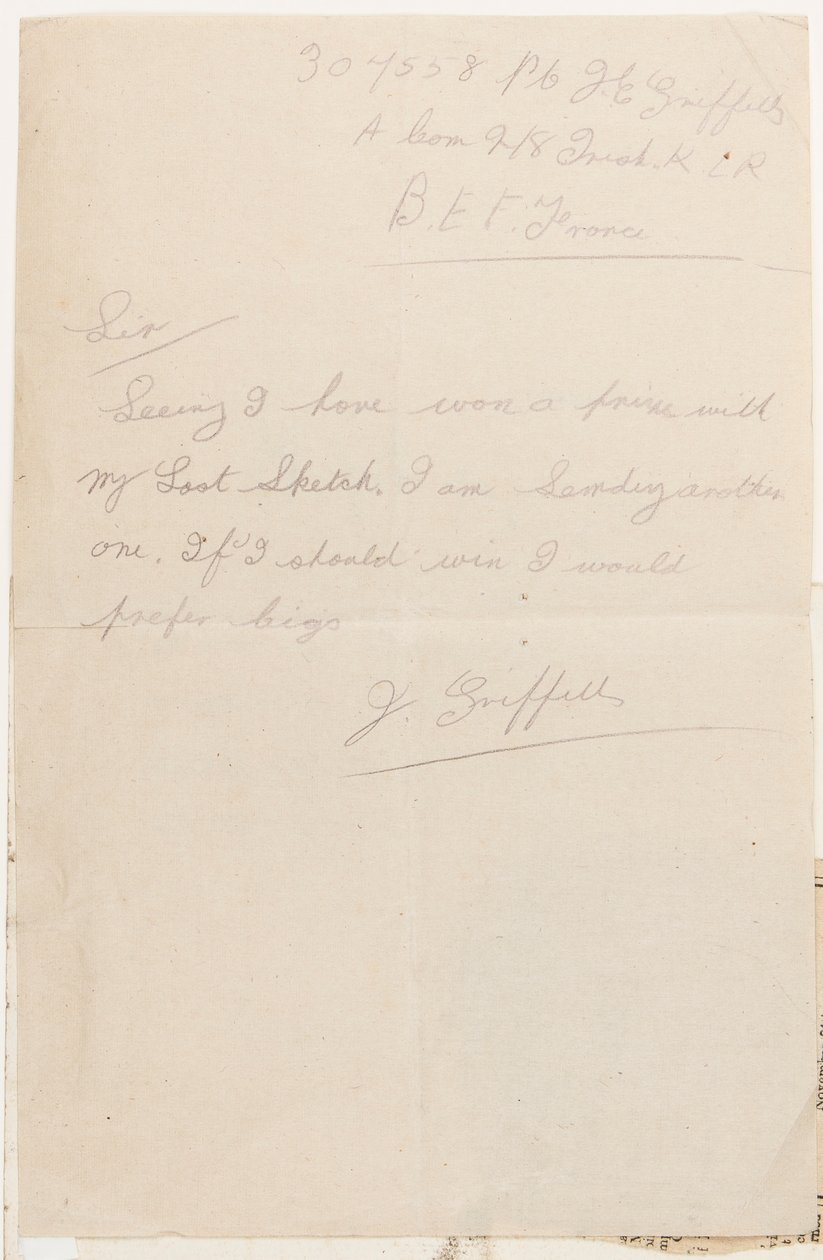 307558 Pte J.E Griffitts
A Com 2/8 Irish. K L R
B. E. F. France
Sir
Seeing I have won a prize with
my Last Sketch. I am Sending another
one. If I should win I would
prefer cigs
J. Griffitts